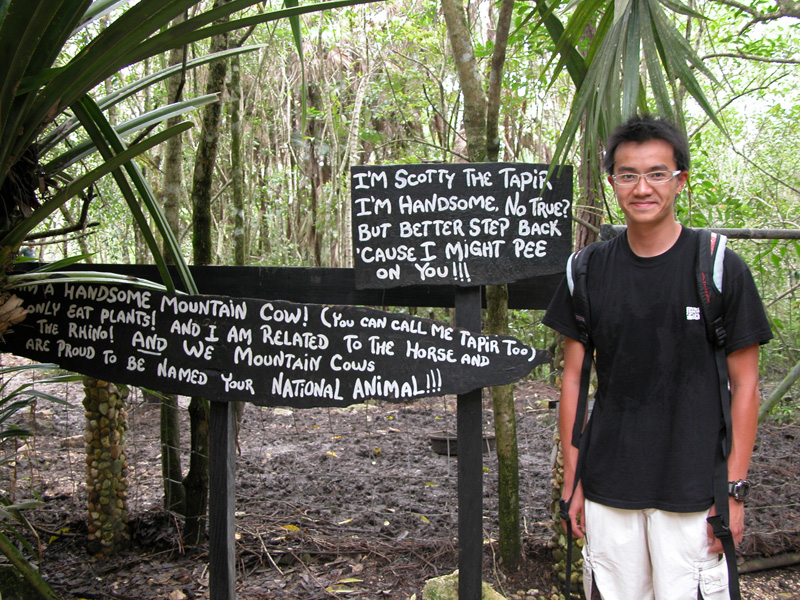 I'M SCOTTY THE TAPIR
I'M HANDSOME, NO TRUE?
BUT BETTER STEP BACK
'CAUSE I MIGHT PEE
ON YOU!!!
I'M A HANDSOME MOUNTAIN COW! (YOU CAN CALL ME TAPIR TOO)
ONLY EAT PLANTS! AND I AM RELATED TO THE HORSE AND
THE RHINO! AND WE MOUNTAIN COWS
ARE PROUD TO BE NAMED YOUR NATIONAL ANIMAL!!!